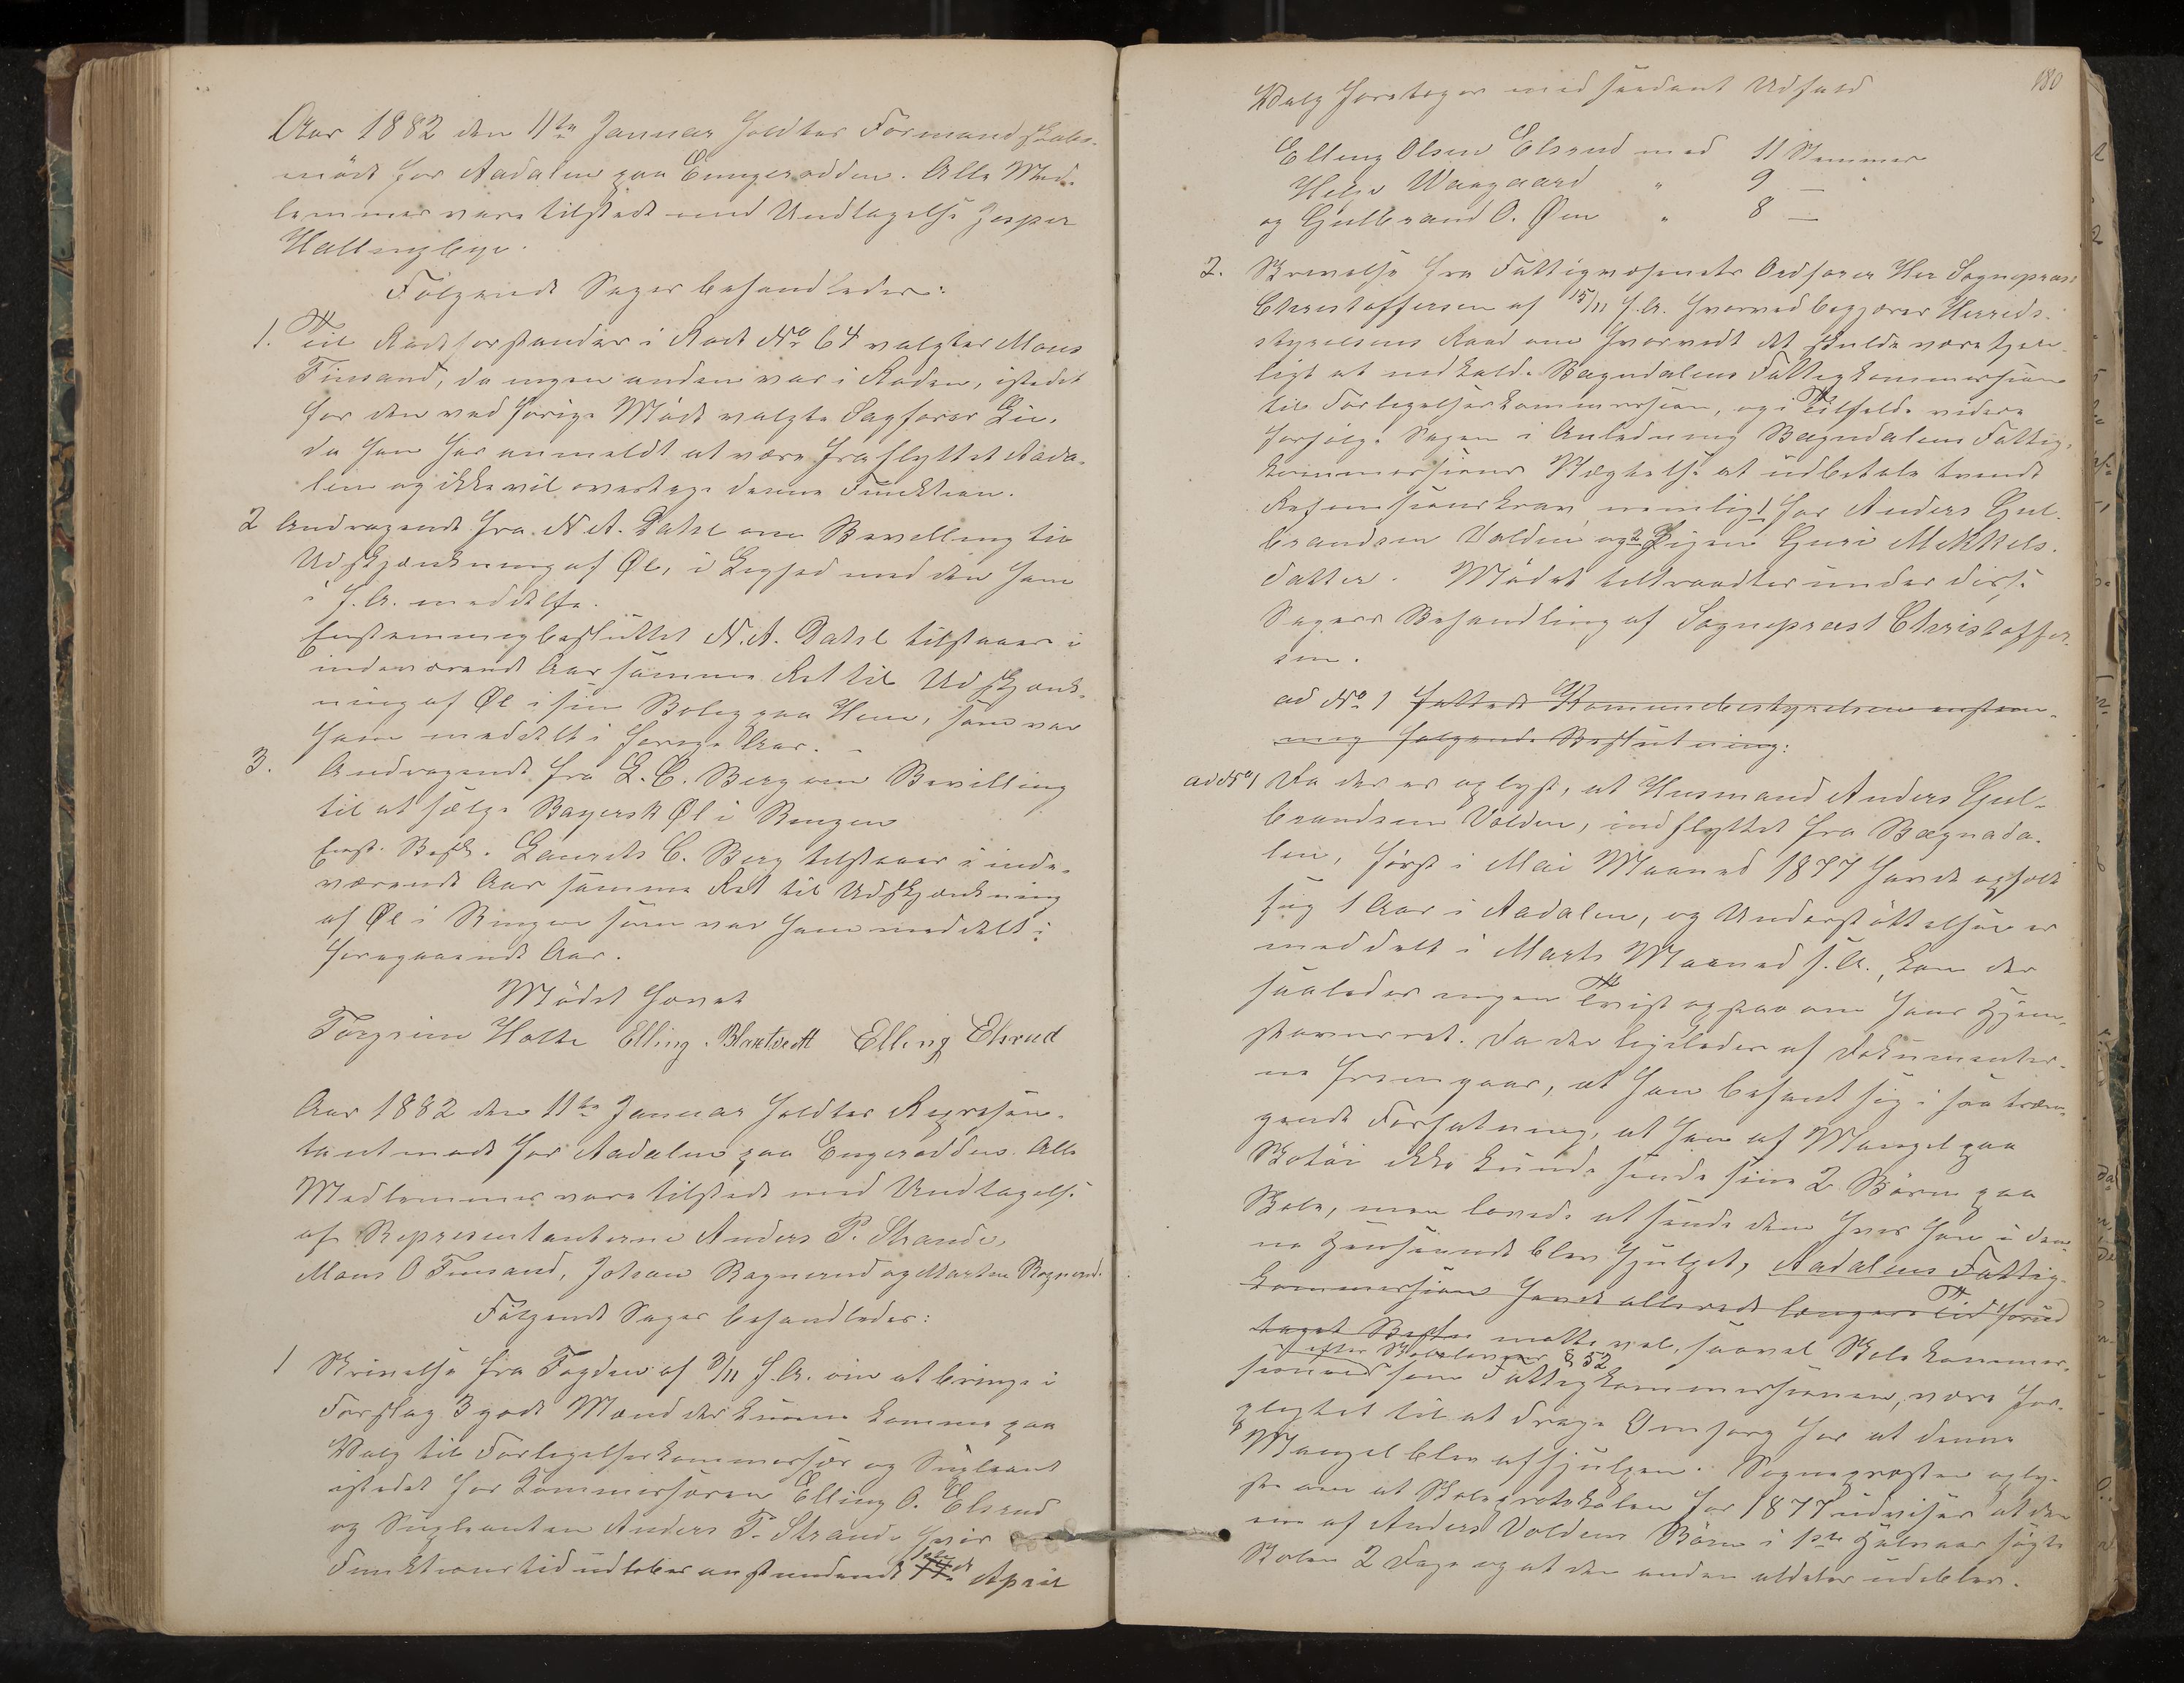 Aar 1882 den 11te Januar holdtes Formandskabs-
möde for Aadalen paa Engerodden. Alle Med-
lemmer vare tilstede med Undtagelse Jesper
Hallingby.
Følgende Sager behandledes:
1. Til Rodeforstander i Rode No 64 valgtes Mons
Finsand, da ingen anden var i Roden, istedet
for den ved forrige Möde valgte Sagfører Lie,
da han har anmeldt at være fraflyttet Aada-
len og ikke vil overtage denne Funktion.
2 Andragende fra N. A. Dahl om Bevilling til
Udskjænkning af Øl, i Lighed med den ham
i f. A. meddelte.
Enstemmig besluttet N. A. Dahl tilstaaes i
indeværende Aar samme Ret til Udskjænk-
ning af Øl i sin Bolig paa Hen, som var
ham meddelt i forrige Aar. -
3. Andragende fra L. C. Berg om Bevilling
til at sælge Bayersk Øl i Ringen
Enst. Besl. Laurits C. Berg tilstaaes i inde-
værende Aar samme Ret til Udskjænkning
af Øl i Ringen som var ham meddelt i
foregaaende Aar.
Mödet hævet
Torgrim Holte Elling Elsrud
Aar 1882 den 11te Januar holdtes Repræsen-
tantmöde for Aadalen paa Engerodden. Alle
Medlemmer vare tilstede med Undtagelse
af Repræsentanterne Anders P. Strande,
Mons O Finsand, Johan Ragnerud og Marten Ragnerud.
Følgende Sager behandledes:
1 Skrivelse fra Fogden af 3/11 f. A. om at bringe i
Forslag 3 gode Mænd der kunne komme paa
Valg til Forligelseskommissær og Supleant
istedet for Kommissæren Elling O. Elsrud
og Supleanten Anders P. Strande hvis
Funktionstid udløber anstundende April
180
Valg foretoges med saadant Udfald
Elling Olsen Elsrud med 11 Stemmer
Helge Waagaard " 9 —
og Gulbrand O. Øen " 8 —
2. Skrivelse fra Fattigvæsenets Ordfører Her Sognepræst
Christoffersen af 15/11 f. A. hvorved begjæres Herreds-
styrelsens Raad om hvorvidt det skulde være tjen-
ligt at indkalde Bægndalens Fattigkommission
til Forligelseskommission, og i Tilfælde videre
forfølge Sagen i Anledning Bægndalens Fattig-
kommissions Vægtelse at udbetale tvende
Refusionskrav nemlig 1 for Anders Gul-
brandsen Volden og 2 Pigen Guri Mikkels-
datter. Mödet tiltraadtes under disse
Sagers Behandling af Sognepræst Christoffer-
sen.
ad No 1 fattede Komunebestyrelsen enstem-
mig følgende Beslutning:
ad No 1 Da der er oplyst, at Husmand Anders Gul-
brandsen Volden, indflyttet fra Bægnada-
len, først i Mai Maaned 1877 havde opholdt
sig 1 Aar i Aadalen, og Understöttelsen er
meddelt i Marts Maaned s. A., kan der
saaledes ingen Tvist opstaa om hans Hjem-
stavnsret. Da det ligeledes af Dokumenter-
ne fremgaar, at han befandt sig i saa træn-
gende Forfatning, at han af Mangel paa
Skotöi ikke kunde sende sine 2 Börn paa
Skole, men lovede at sende dem hvis han i den-
ne Henseende blev hjulpet, Aadalens Fattig-
kommission havde allerede længere Tid forud
taget Beslu maatte vel, saavel Skolekommis-
efter Skoleloven § 52
sionen som Fattigkommissionen, være for-
pligtet til at drage Omsorg for at denne
Mangel blev afhjulpen. Sognepræsten oply-
ste om at Skoleprotokolen for 1877 udviser at den
ene af Anders Voldens Börn i 1ste Halvaar søgte
Skolen 2 Dage og at den anden aldeles udeblev.